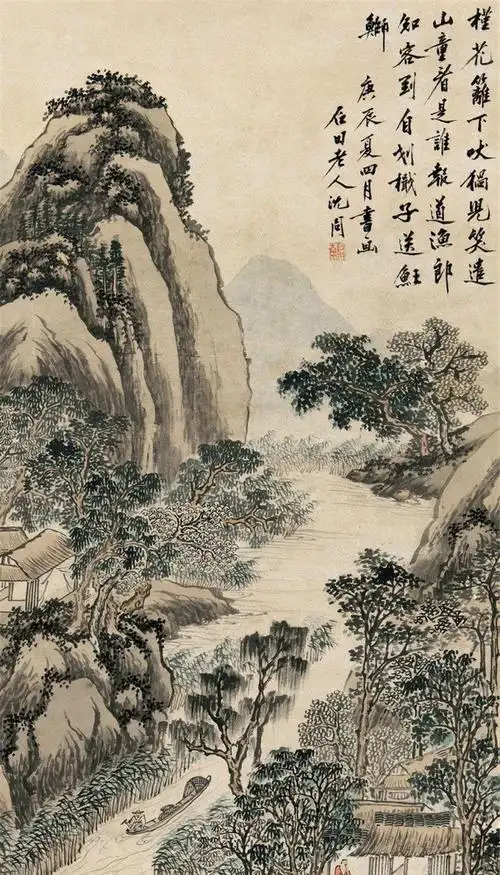 槿花籬下吠猧兒笑遣
山童看是誰報道漁郎
知客到自划檝子送
庚辰夏四月書畫
石田老人沈周